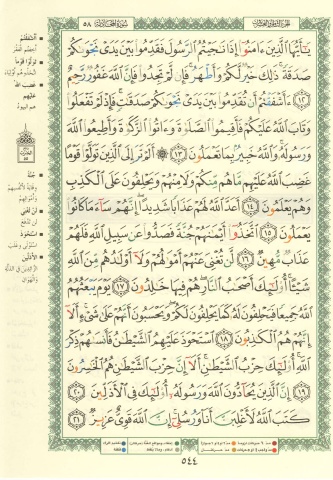 الجزء الثامن والعشرون
سورة المجادلة
٥٨
يَٰٓأَيُّهَا ٱلَّذِينَ ءَامَنُوٓا۟ إِذَا نَٰجَيْتُمُ ٱلرَّسُولَ فَقَدِّمُوا۟ بَيْنَ يَدَىْ نَجْوَىٰكُمْ
صَدَقَةً ۚ ذَٰلِكَ خَيْرٌ لَّكُمْ وَأَطْهَرُ ۚ فَإِن لَّمْ تَجِدُوا۟ فَإِنَّ ٱللَّهَ غَفُورٌ رَّحِيمٌ
١٢ ءَأَشْفَقْتُمْ أَن تُقَدِّمُوا۟ بَيْنَ يَدَىْ نَجْوَىٰكُمْ صَدَقَٰتٍ ۚ فَإِذْ لَمْ تَفْعَلُوا۟
وَتَابَ ٱللَّهُ عَلَيْكُمْ فَأَقِيمُوا۟ ٱلصَّلَوٰةَ وَءَاتُوا۟ ٱلزَّكَوٰةَ وَأَطِيعُوا۟ ٱللَّهَ
وَرَسُولَهُۥ ۚ وَٱللَّهُ خَبِيرٌۢ بِمَا تَعْمَلُونَ ١٣ ۞ أَلَمْ تَرَ إِلَى ٱلَّذِينَ تَوَلَّوْا۟ قَوْمًا
غَضِبَ ٱللَّهُ عَلَيْهِم مَّا هُم مِّنكُمْ وَلَا مِنْهُمْ وَيَحْلِفُونَ عَلَى ٱلْكَذِبِ
وَهُمْ يَعْلَمُونَ ١٤ أَعَدَّ ٱللَّهُ لَهُمْ عَذَابًا شَدِيدًا ۖ إِنَّهُمْ سَآءَ مَا كَانُوا۟
يَعْمَلُونَ ١٥ ٱتَّخَذُوٓا۟ أَيْمَٰنَهُمْ جُنَّةً فَصَدُّوا۟ عَن سَبِيلِ ٱللَّهِ فَلَهُمْ
عَذَابٌ مُّهِينٌ ١٦ لَّن تُغْنِىَ عَنْهُمْ أَمْوَٰلُهُمْ وَلَآ أَوْلَٰدُهُم مِّنَ ٱللَّهِ
شَيْـًٔا ۚ أُو۟لَٰٓئِكَ أَصْحَٰبُ ٱلنَّارِ ۖ هُمْ فِيهَا خَٰلِدُونَ ١٧ يَوْمَ يَبْعَثُهُمُ
ٱللَّهُ جَمِيعًا فَيَحْلِفُونَ لَهُۥ كَمَا يَحْلِفُونَ لَكُمْ ۖ وَيَحْسَبُونَ أَنَّهُمْ عَلَىٰ شَىْءٍ ۚ أَلَآ
إِنَّهُمْ هُمُ ٱلْكَٰذِبُونَ ١٨ ٱسْتَحْوَذَ عَلَيْهِمُ ٱلشَّيْطَٰنُ فَأَنسَىٰهُمْ ذِكْرَ
ٱللَّهِ ۚ أُو۟لَٰٓئِكَ حِزْبُ ٱلشَّيْطَٰنِ ۚ أَلَآ إِنَّ حِزْبَ ٱلشَّيْطَٰنِ هُمُ ٱلْخَٰسِرُونَ
١٩ إِنَّ ٱلَّذِينَ يُحَآدُّونَ ٱللَّهَ وَرَسُولَهُۥٓ أُو۟لَٰٓئِكَ فِى ٱلْأَذَلِّينَ ٢٠
كَتَبَ ٱللَّهُ لَأَغْلِبَنَّ أَنَا۠ وَرُسُلِىٓ ۚ إِنَّ ٱللَّهَ قَوِىٌّ عَزِيزٌ ٢١
٥٤٤